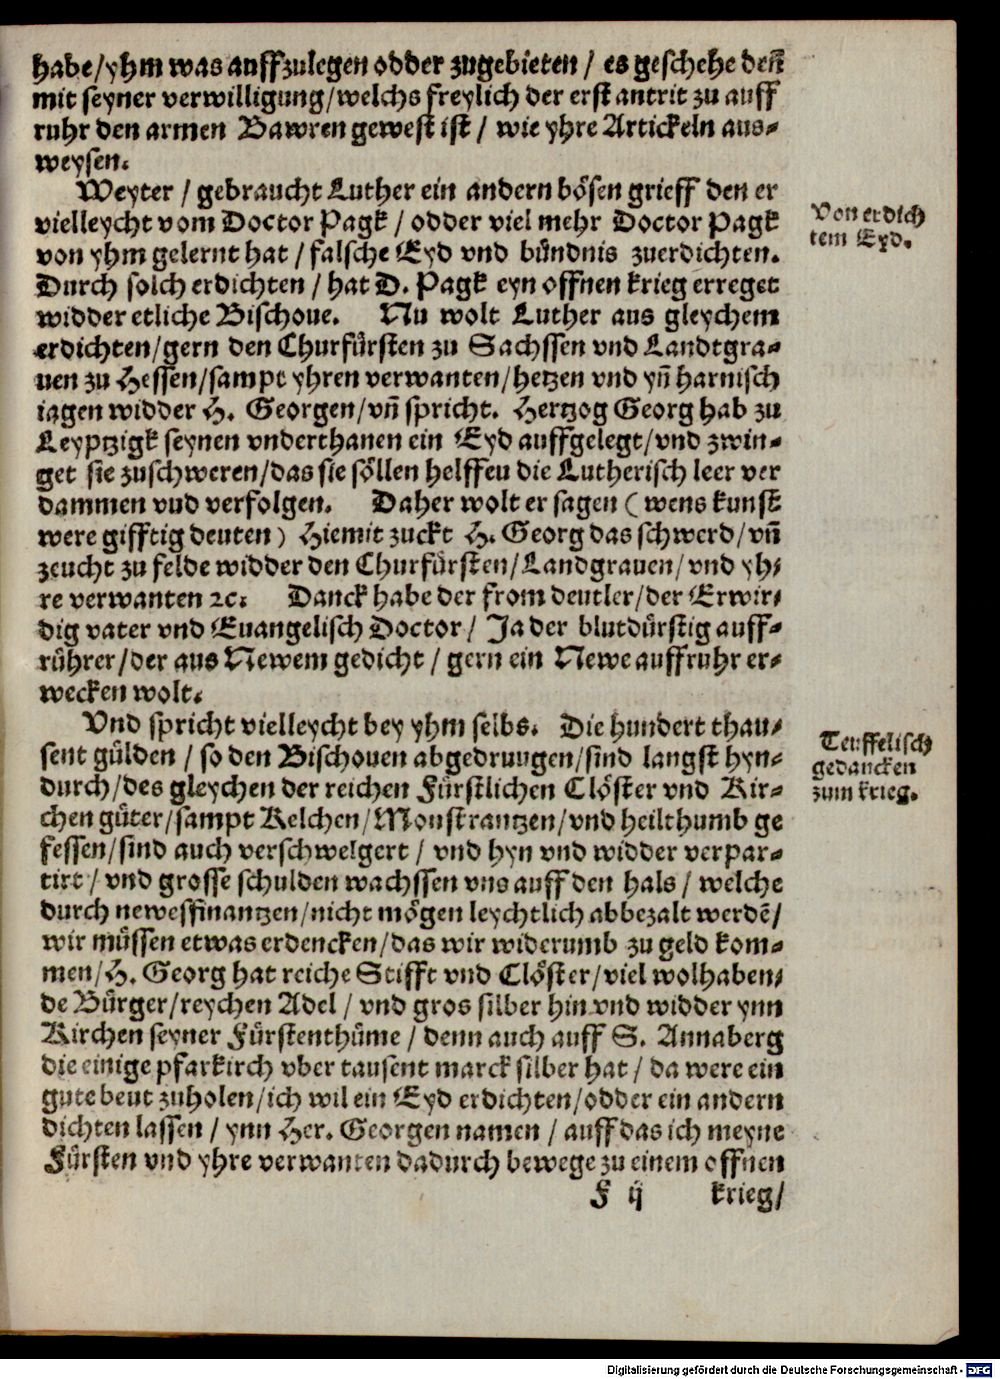 habe/yhm was auffzulegen odder zugebieten / es geschehe deñ
mit seyner verwilligung/welchs freylich der erst antrit zu auff
ruhr den armen Bawren gewest ist / wie yhre Artickeln aus⸗
weysen.
Weyter / gebraucht Luther ein andern bösen grieff den er
vielleycht vom Doctor Pagk / odder viel mehr Doctor Pagk
von yhm gelernt hat / falsche Eyd vnd bündnis zuerdichten.
Durch solch erdichten / hat D. Pagk eyn offnen krieg erreget
widder etliche Bischoue. Nu wolt Luther aus gleychem
erdichten/gern den Churfürsten zu Sachssen vnd Landtgra⸗
uen zu Hessen/sampt yhren verwanten/hetzen vnd yñ harnisch
iagen widder H. Georgen/vñ spricht. Hertzog Georg hab zu
Leyptzigk seynen vnderthanen ein Eyd auffgelegt/vnd zwin⸗
get sie zuschweren/das sie söllen helffeu die Lutherisch leer ver
dammen vud verfolgen. Daher wolt er sagen (wens kunst
were gifftig deuten) Hiemit zuckt H. Georg das schwerd/vñ
zeucht zu felde widder den Churfürsten/Landgrauen/vnd yh⸗
re verwanten ꝛc. Danck habe der from deutler/der Erwir⸗
dig vater vnd Euangelisch Doctor / Ja der blutdürstig auff⸗
rührer/der aus Newem gedicht / gern ein Newe auffruhr er⸗
wecken wolt.
Vnd spricht vielleycht bey yhm selbs. Die hundert thau⸗
sent gülden / so den Bischouen abgedruugen/sind langst hyn⸗
durch/des gleychen der reichen Fürstlichen Clöster vnd Kir⸗
chen güter/sampt Kelchen/Monstrantzen/vnd heilthumb ge
fessen/sind auch verschwelgert / vnd hyn vnd widder verpar⸗
tirt / vnd grosse schulden wachssen vns auff den hals / welche
durch newesfinantzen/nicht mögen leychtlich abbezalt werdē/
wir müssen etwas erdencken/das wir widerumb zu geld kom⸗
men/H. Georg hat reiche Stifft vnd Clöster/viel wolhaben⸗
de Bürger/reychen Adel / vnd gros silber hin vnd widder ynn
Kirchen seyner Fürstenthüme / denn auch auff S. Annaberg
die einige pfarkirch vber tausent marck silber hat / da were ein
gute beut zuholen/ich wil ein Eyd erdichten/odder ein andern
dichten lassen / ynn Her. Georgen namen / auff das ich meyne
Fürsten vnd yhre verwanten dadurch bewege zu einem offnen
F ij krieg/
Von erdich
tem Eyd.
Teuffelisch
gedancken
zum krieg.
Digitalisierung gefördert durch die Deutsche Forschungsgemeinschaft - DFG